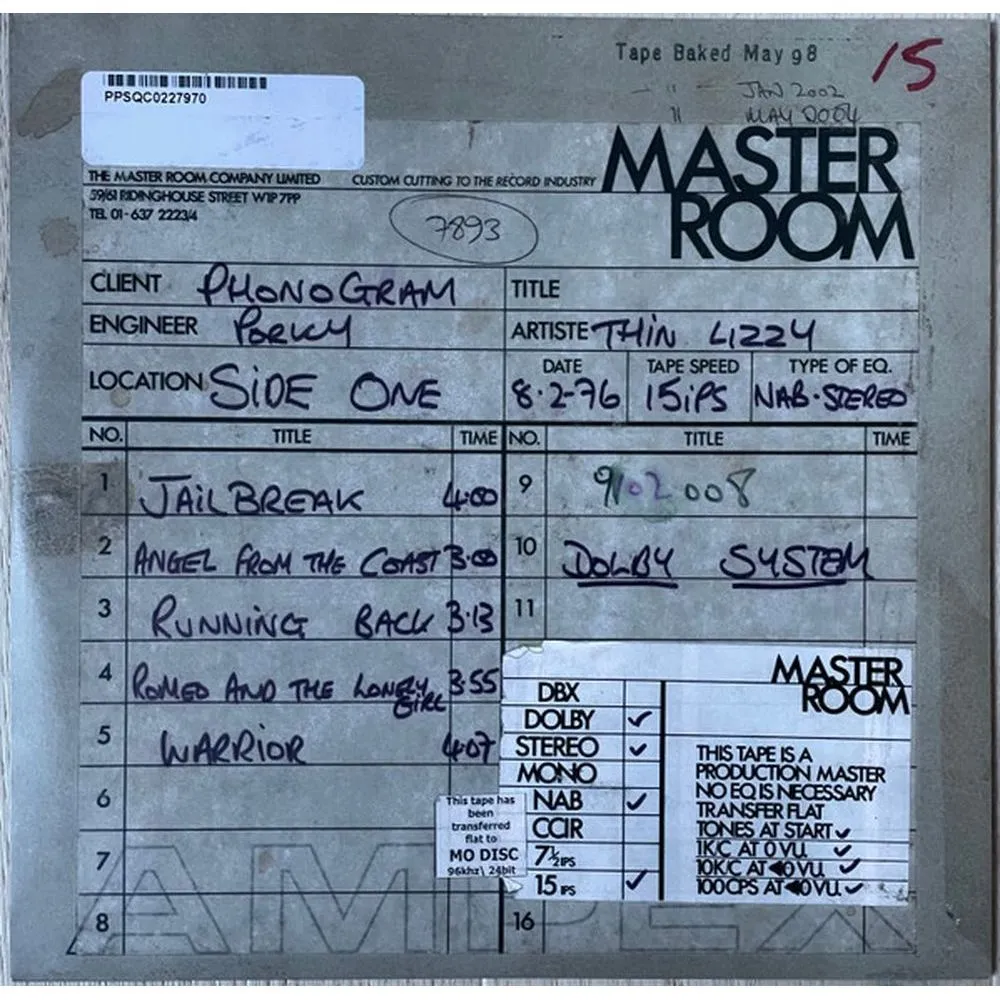 Tape Baked May 98
15
— " — JAN 2002
" MAY 2004
PPSQC0227970
MASTER
ROOM
THE MASTER ROOM COMPANY LIMITED CUSTOM CUTTING TO THE RECORD INDUSTRY
59/61 RIDINGHOUSE STREET W1P 7PP
TEL 01-637 2223/4
7893
CLIENT PHONOGRAM TITLE
ENGINEER PORKY ARTISTE THIN LIZZY
LOCATION SIDE ONE
DATE TAPE SPEED TYPE OF EQ.
8·2-76 15iPS NAB·STEREO
NO. TITLE TIME NO. TITLE TIME
1 JAILBREAK 4·00 9 9102 008
2 ANGEL FROM THE COAST 3·00 10 DOLBY SYSTEM
3 RUNNING BACK 3·13 11
4 ROMEO AND THE LONELY GIRL 3·55
5 WARRIOR 4·07
6
7
8 16
This tape has
been
transferred
flat to
MO DISC
96khz\ 24bit
MASTER
ROOM
DBX
DOLBY ✓
STEREO ✓
MONO
NAB ✓
CCIR
7½ IPS
15 IPS ✓
THIS TAPE IS A
PRODUCTION MASTER
NO EQ IS NECESSARY
TRANSFER FLAT
TONES AT START ✓
1K.C AT 0 VU. ✓
10K/C AT 0 VU. ✓
100CPS AT 0 VU. ✓
AMPEX